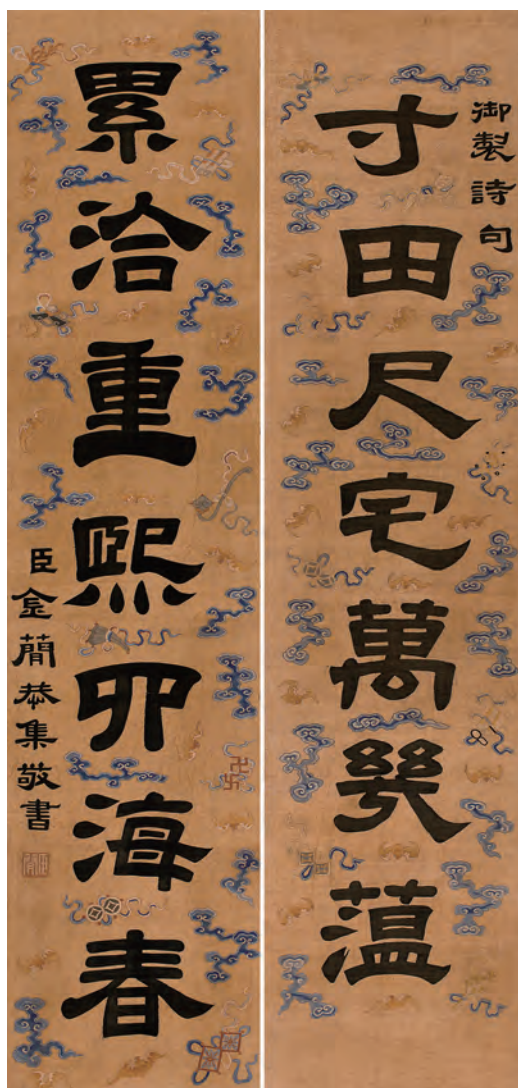 御製詩句
寸田尺宅萬幾藴
累洽重熙四海春
臣金簡恭集敬書